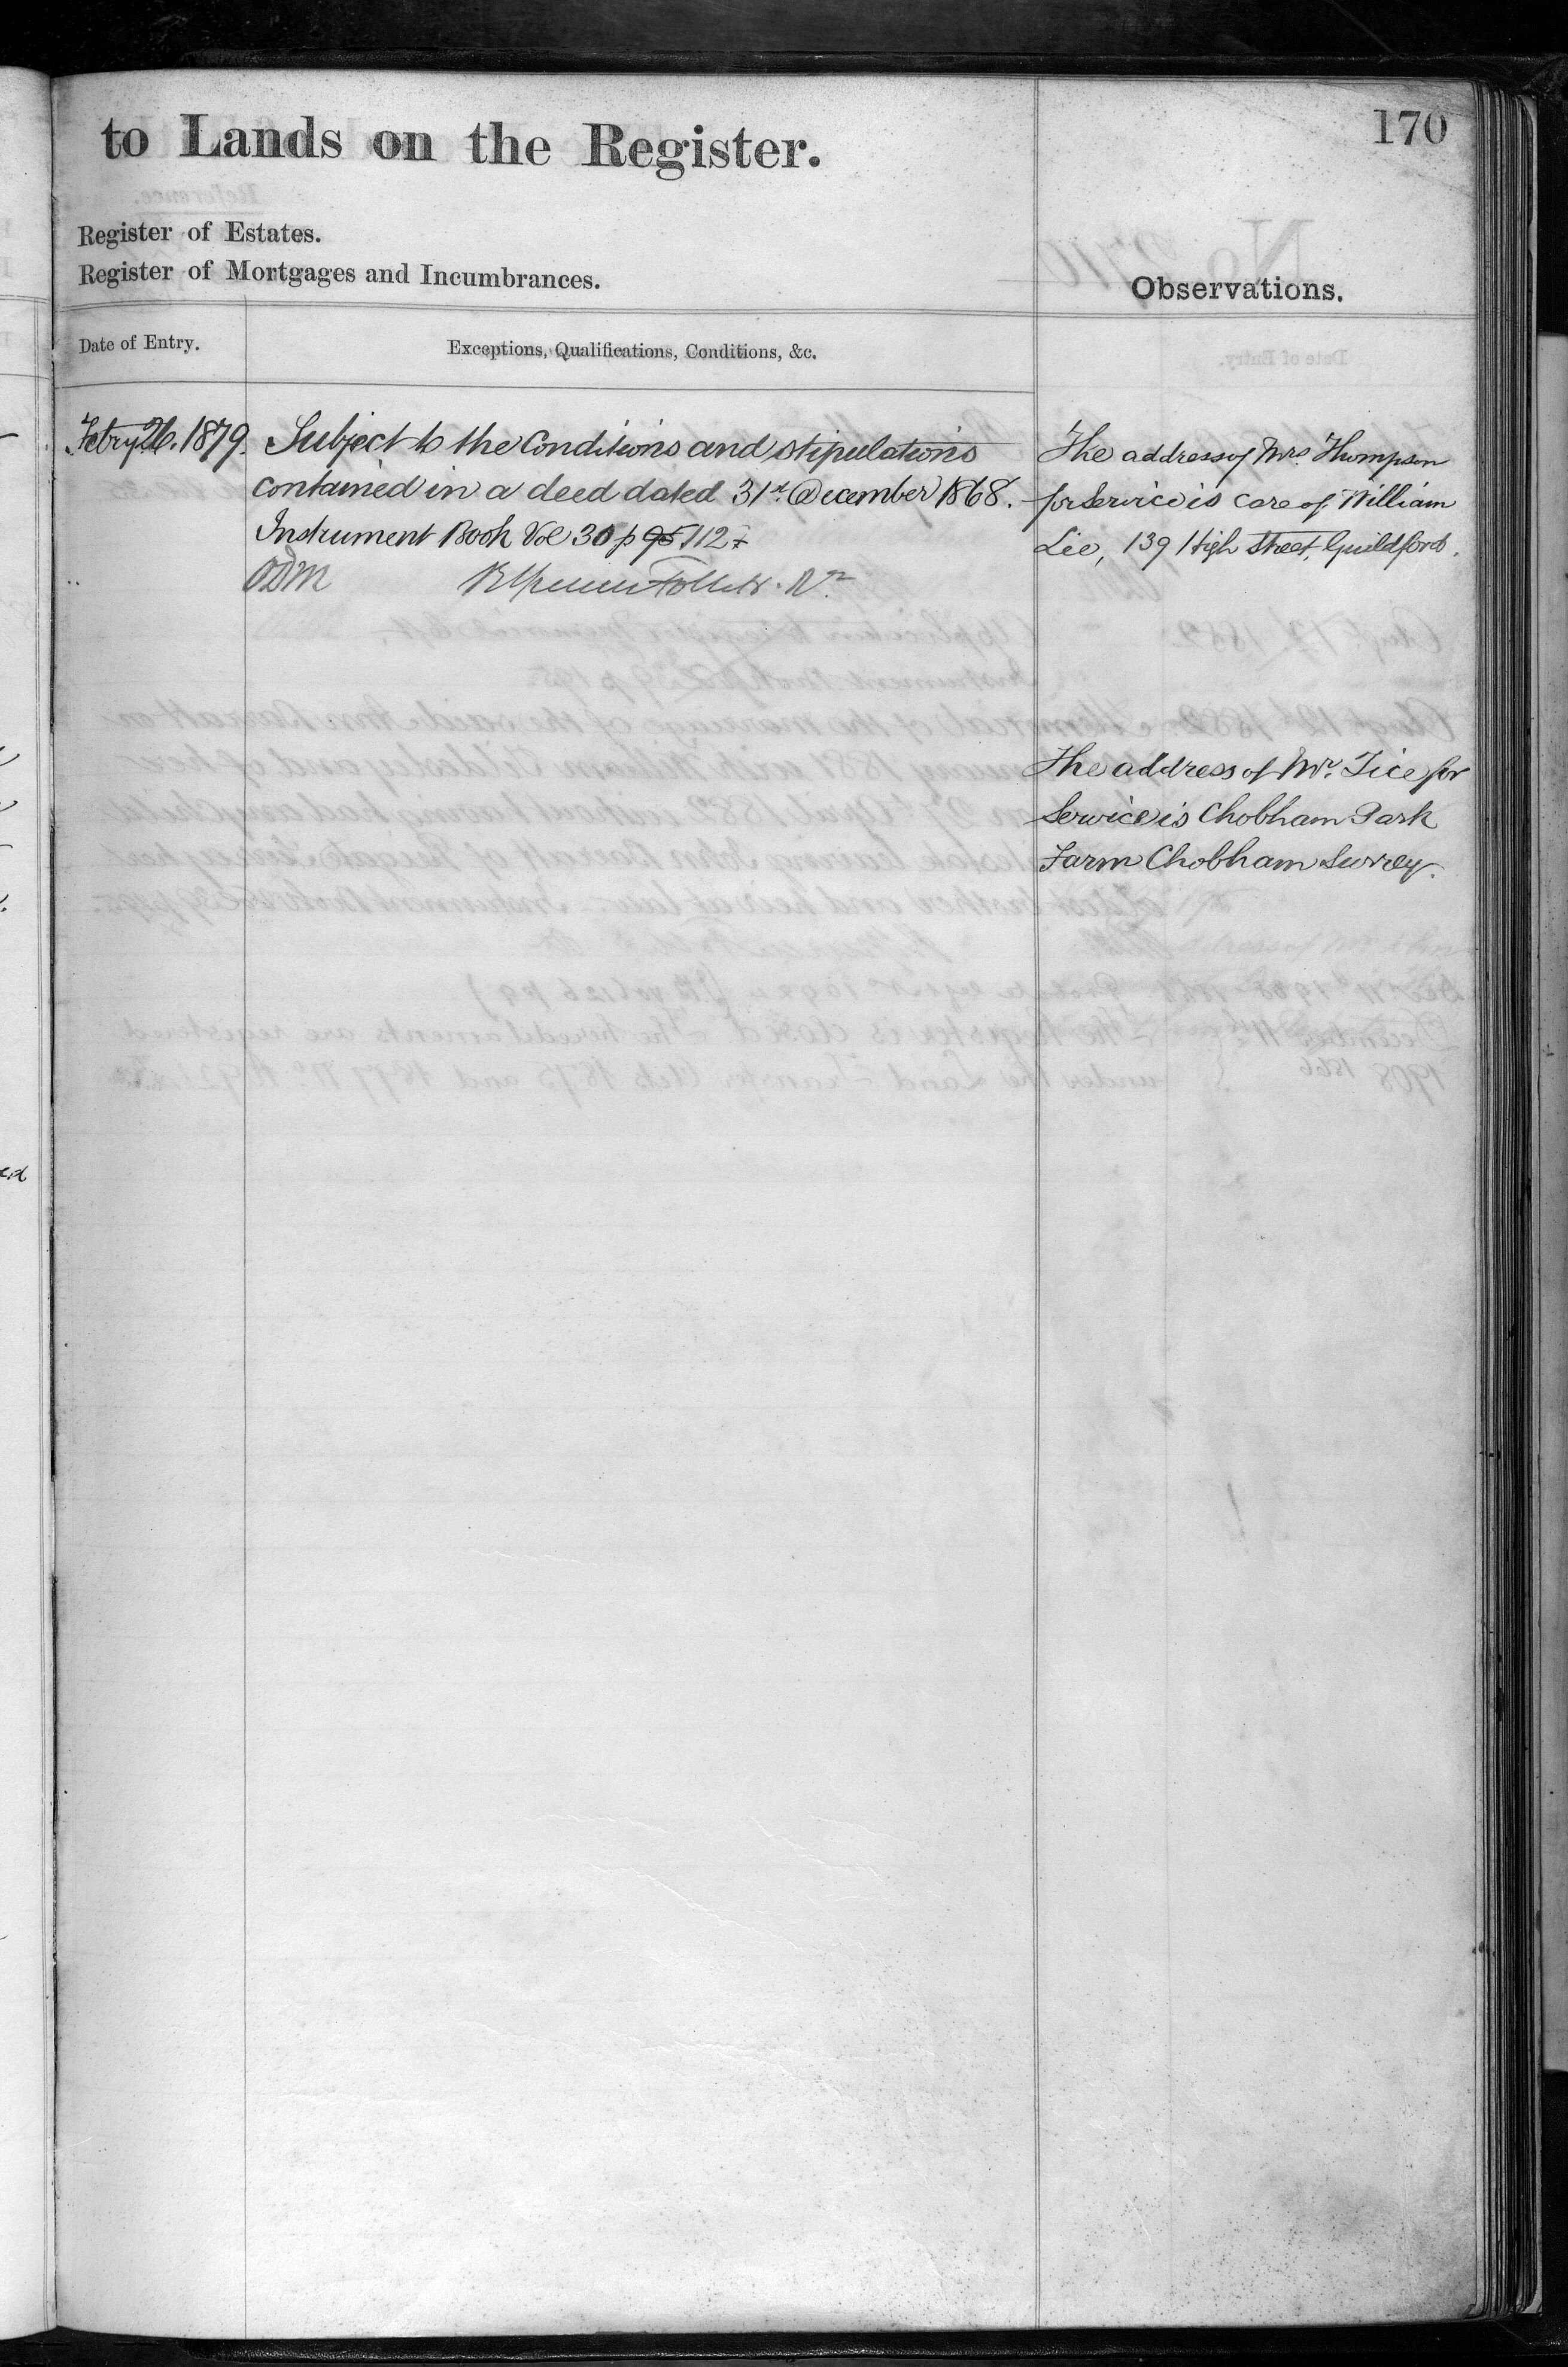 170
to Lands on the Register.
Register of Estates.
Register of Mortgages and Incumbrances.
Observations.
Date of Entry.
Exceptions, Qualifications, Conditions, &c.
Febry 26. 1879.
Subject to the Conditions and stipulations
contained in a deed dated 31st December 1868.
Instrument Book Vol 30 p 95 112
ODM
The address of Mrs. Thompson
for service is care of William
Lee, 139 High Street, Guildford.
The address of Mr. Tice for
Service is Chobham Park
Farm Chobham Surrey.